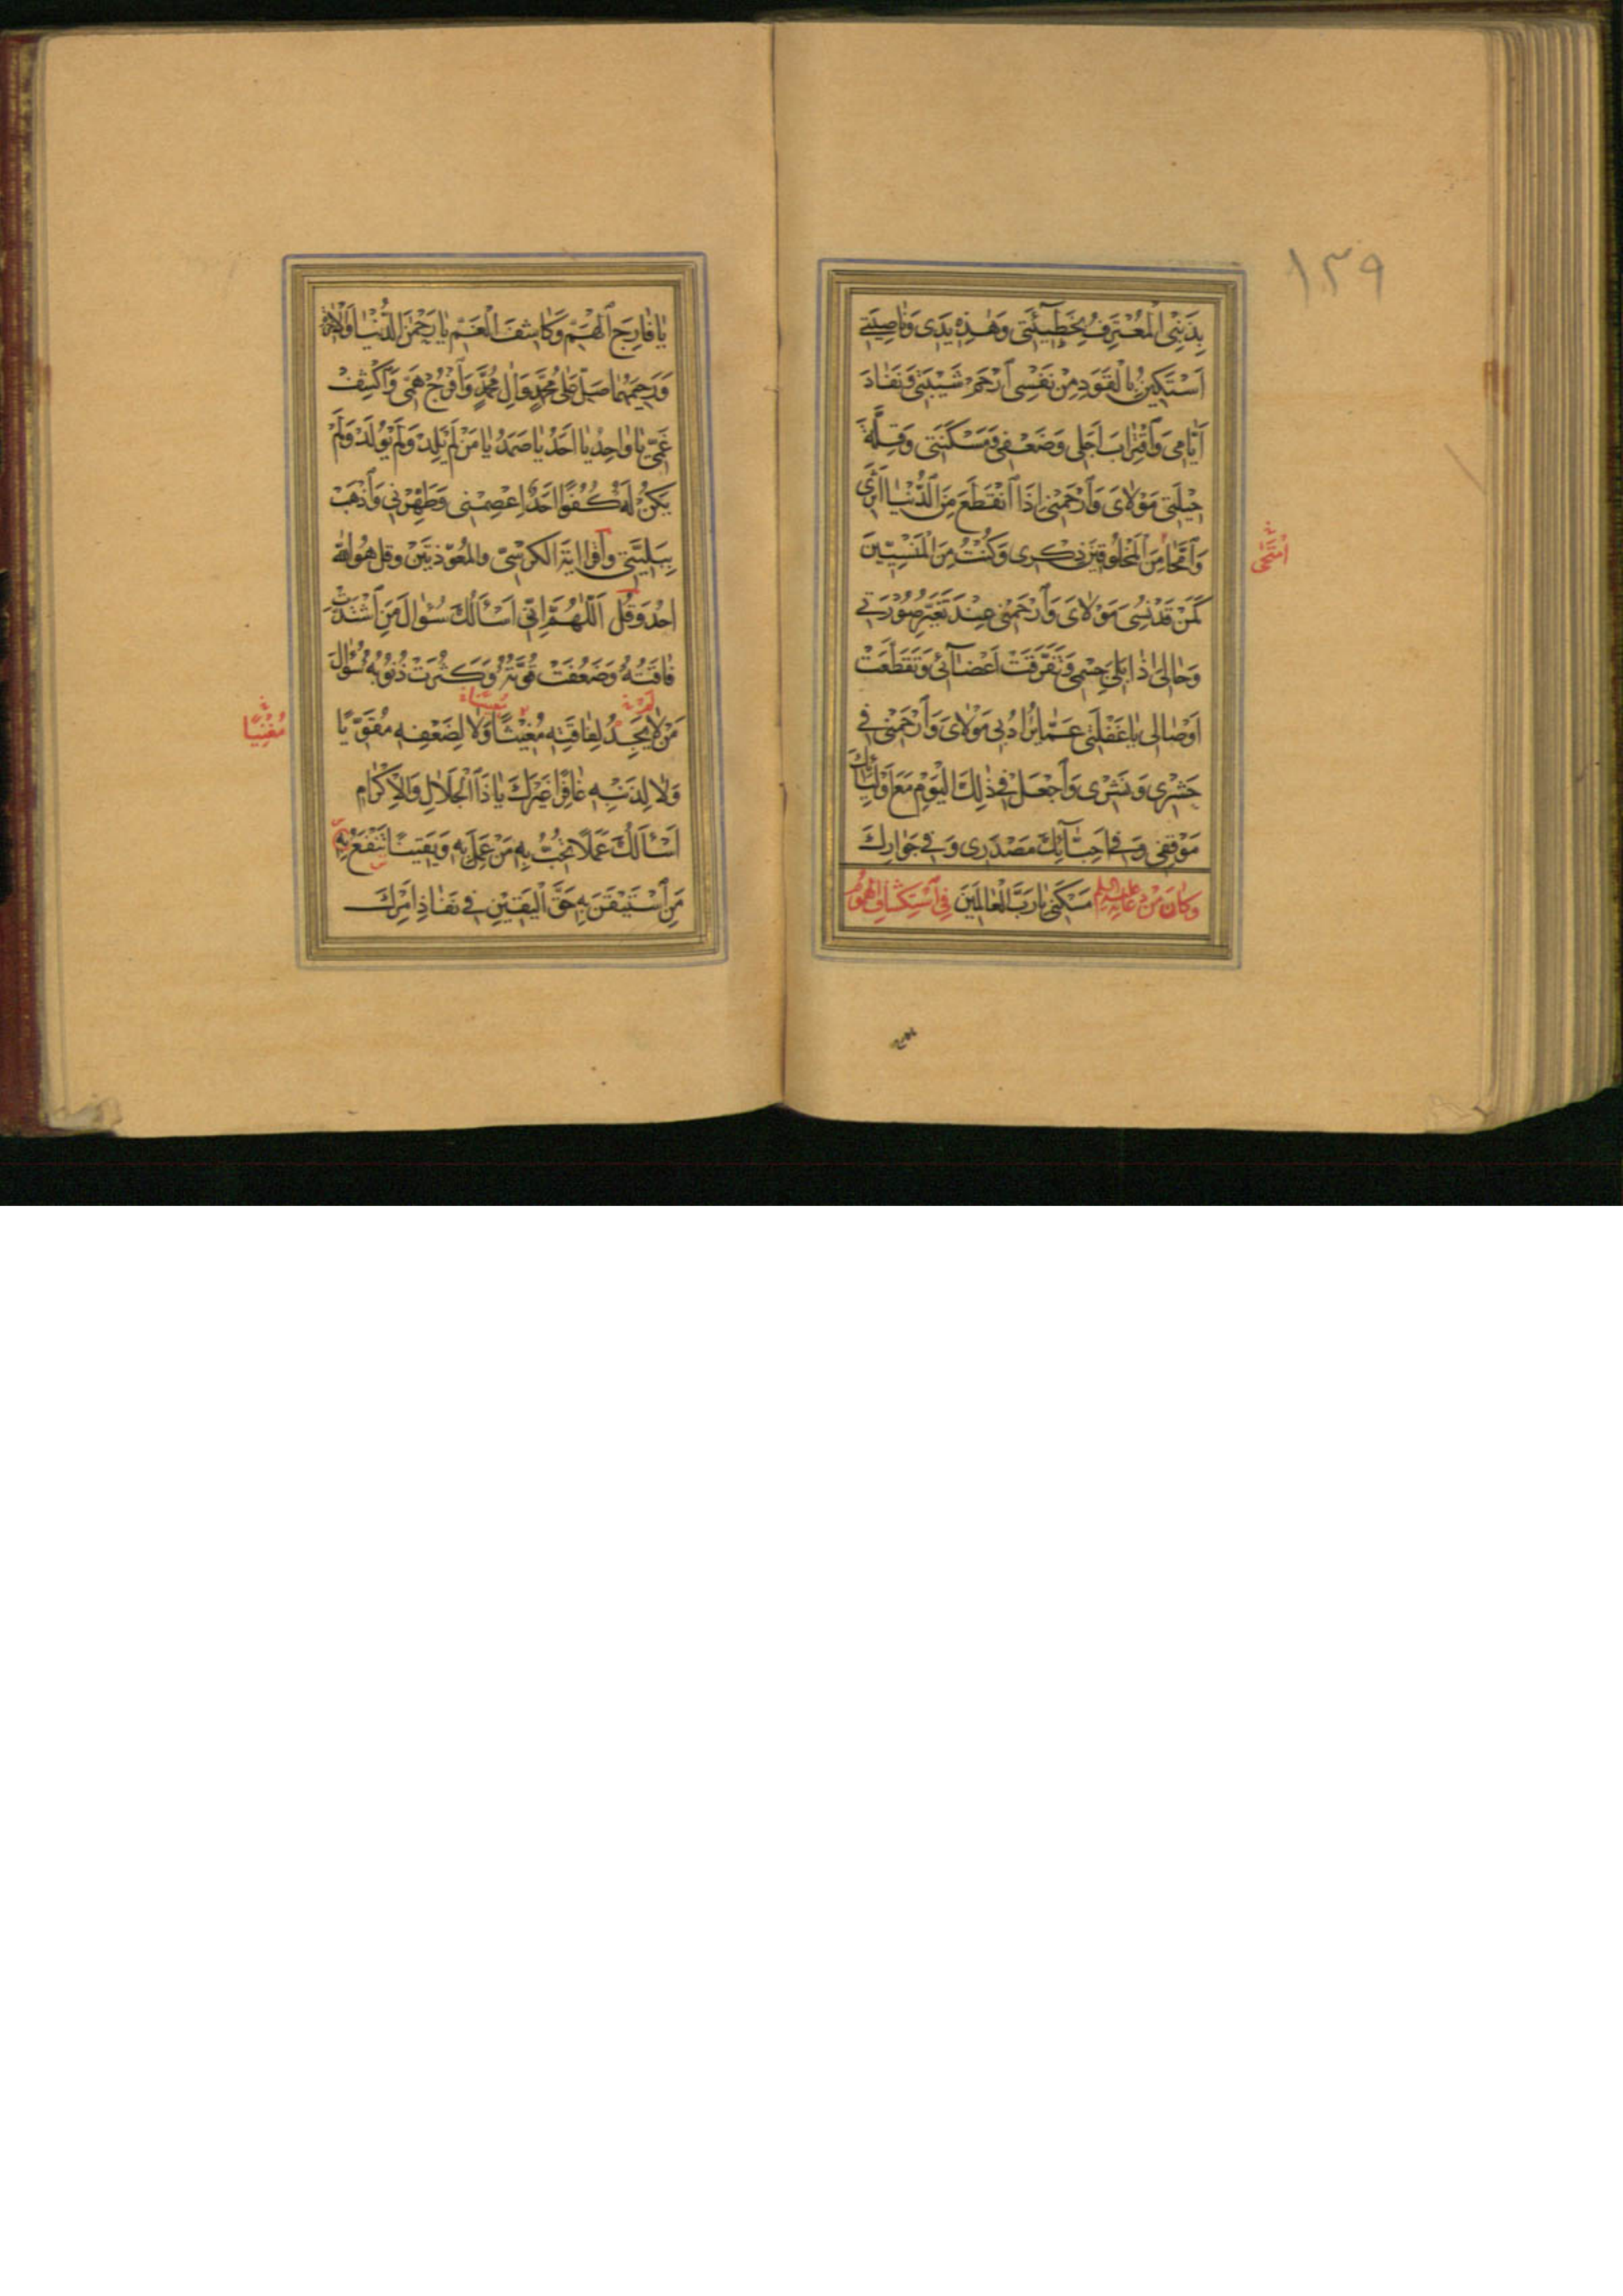 ١٣٩
بِذَنْبِى الْمُعْتَرِفُ بِخَطِيئَتِى وَهٰذِهِ يَدِى وَنَاصِيَتِى
اَسْتَكِينُ بِالْقَوَدِ مِنْ نَفْسِى اَرْحَمْ شَيْبَتِى وَنَفَادَ
اَيَّامِى وَاقْتِرَابَ اَجَلِى وَضَعْفِى وَمَسْكَنَتِى وَقِلَّةَ
حِيلَتِى مَوْلَاىَ وَارْحَمْنِى اِذَا انْقَطَعَ مِنَ الدُّنْيَا اَثَرِى
وَامَّحَا مِنَ الْمَخْلُوقِينَ ذِكْرِى وَكُنْتُ مِنَ الْمَنْسِيِّينَ
امْتَحٰى
كَمَنْ قَدْ نُسِىَ مَوْلَاىَ وَارْحَمْنِى عِنْدَ تَغَيُّرِ صُورَتِى
وَحَالِى اِذَا بَلِىَ جِسْمِى وَتَفَرَّقَتْ اَعْضَآئِى وَتَقَطَّعَتْ
اَوْصَالِى يَا غَفْلَتِى عَمَّا يُرَادُ بِى مَوْلَاىَ وَارْحَمْنِى فِى
حَشْرِى وَنَشْرِى وَاجْعَلْ فِى ذٰلِكَ الْيَوْمِ مَعَ اَوْلِيَائِكَ
مَوْقِفِى وَفِى اَحِبَّآئِكَ مَصْدَرِى وَفِى جِوَارِكَ
وَكَانَ مِنْ دُعَائِهِ عليه السلم مَسْكَنِى يَا رَبَّ الْعَالَمِينَ فِى اسْتِكْشَافِ الْهُمُومِ
يَا فَارِجَ الْهَمِّ وَكَاشِفَ الْغَمِّ يَا رَحْمٰنَ الدُّنْيَا وَالْاٰخِرَةِ
وَرَحِيمَهُمَا صَلِّ عَلٰى مُحَمَّدٍ وَاٰلِ مُحَمَّدٍ وَافْرُجْ هَمِّى وَاكْشِفْ
غَمِّى يَا وَاحِدُ يَا اَحَدُ يَا صَمَدُ يَا مَنْ لَمْ يَلِدْ وَلَمْ يُولَدْ وَلَمْ
يَكُنْ لَهُ كُفُوًا اَحَدٌ اِعْصِمْنِى وَطَهِّرْنِى وَاذْهَبْ
بِبَلِيَّتِى وَاقرا اية الكرسىّ والمعوّذتين وقل هو الله
احد وَقُل اَللّٰهُمَّ اِنِّى اَسْئَلُكَ سُؤَالَ مَنِ اشْتَدَّتْ
فَاقَتُهُ وَضَعُفَتْ قُوَّتُهُ وَكَثُرَتْ ذُنُوبُهُ سُؤَالَ
مَنْ لَا يَجِدُ لِفَاقَتِهِ مُغِيثًا وَلَا لِضَعْفِهِ مُقَوِّيًا
مُغْنِيًا
وَلَا لِذَنْبِهِ غَافِرًا غَيْرَكَ يَا ذَا الْجَلَالِ وَالْاِكْرَامِ
اَسْئَلُكَ عَمَلًا تُحِبُّ بِهِ مَنْ عَمِلَ بِهِ وَيَقِينًا تَنْفَعُ بِهِ
مَنِ اسْتَيْقَنَ بِهِ حَقَّ الْيَقِينِ فِى نَفَاذِ اَمْرِكَ